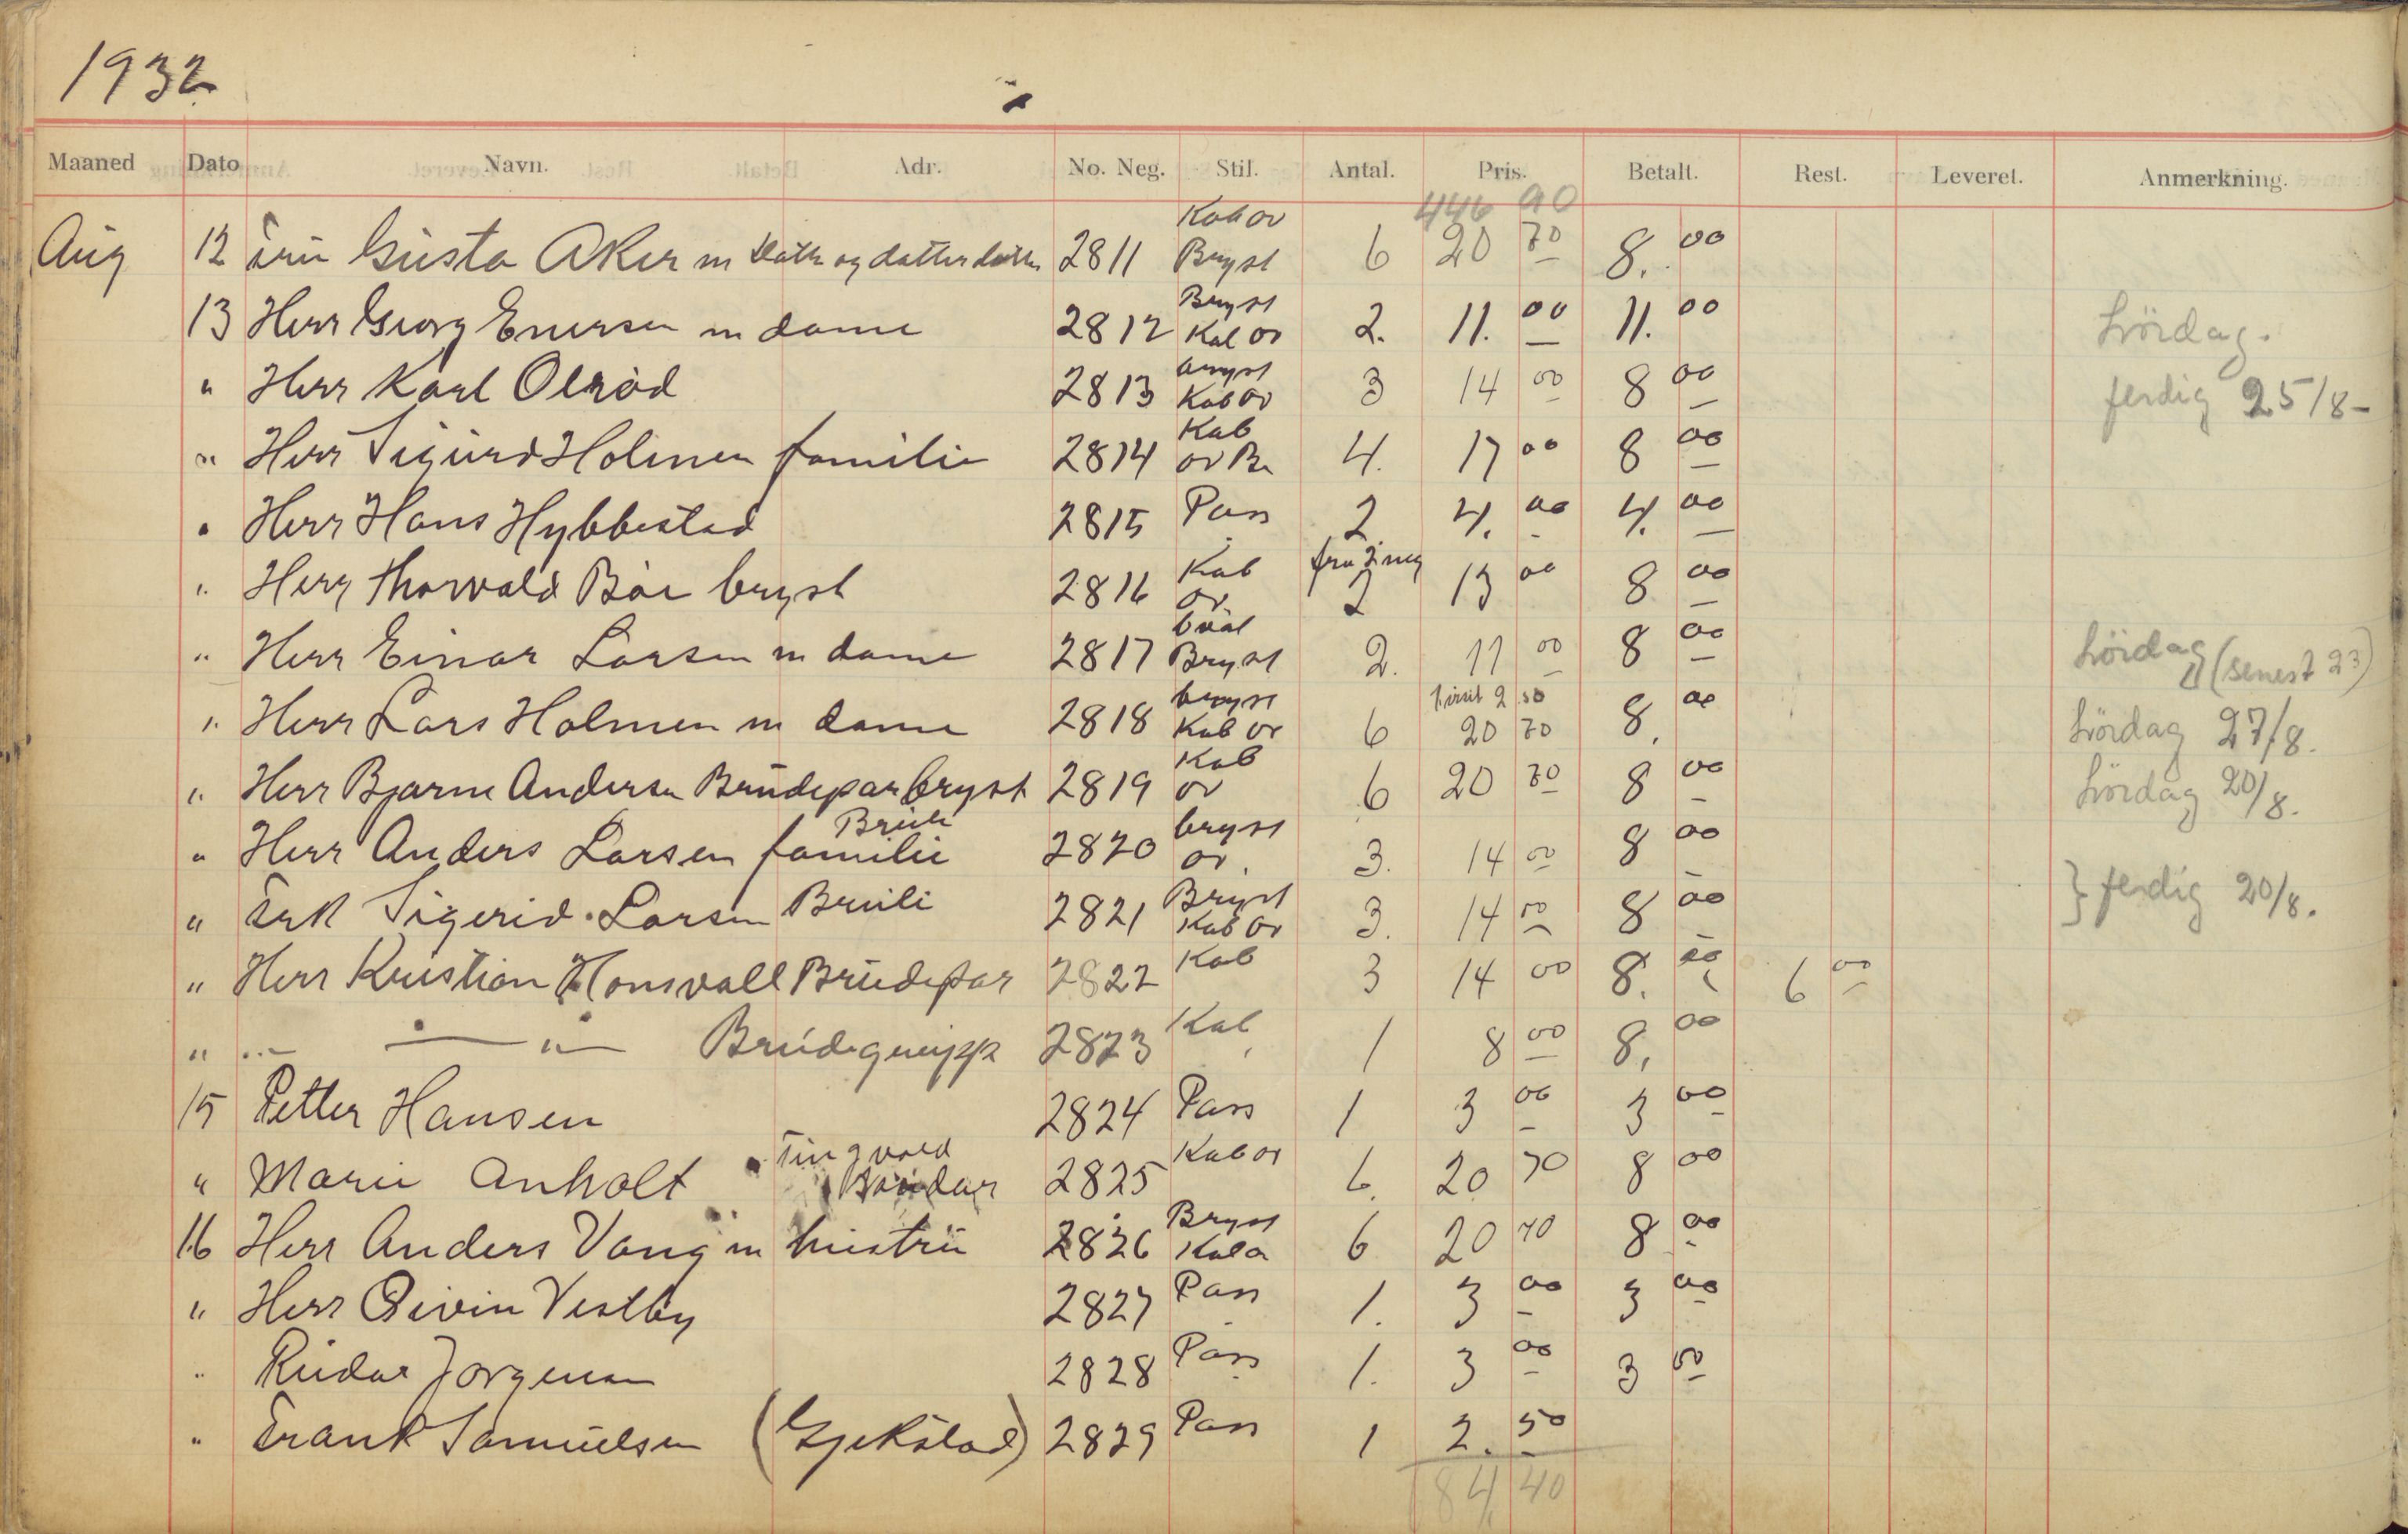 1932
Maaned Dato Navn. Adr. No. Neg. Stil. Antal. Pris. Betalt. Rest. Leveret. Anmerkning.
446 90
Aug 12 Fru Gusta Aker m datter og datterdatter 2811 Kab ov Bryst 6 20 70 8. 00
13 Herr Georg Enersen m dame 2812 Bryst Kab ov 2. 11. 00 11. 00 Lördag.
" Herr Karl Olröd 2813 bryst Kab ov 3 14 00 8 00 ferdig 25/8-
" Herr Sigurd Holmen familie 2814 Kab ov Br 4. 17 00 8 00
" Herr Hans Hybbestad 2815 Pass 2 4. 00 4. 00
" Herr Thorvald Bäe bryst 2816 Kab ov. fra 2 neg 2 13 00 8 00
" Herr Einar Larsen m dame 2817 oval Bryst 2. 11 00 8 00 Lördag (senest 23)
" Herr Lars Holmen m dame 2818 bryst Kab ov 6 2 50 20 70 8. 00 Lördag 27/8.
" Herr Bjarne Andersen Brudepar bryst 2819 Kab ov 6 20 70 8 00 Lördag 20/8.
" Herr Anders Larsen familie Bruli 2820 bryst ov. 3. 14 00 8 00
" Frk Sigerid Larsen Bruli 2821 Bryst Kab ov 3. 14 00 8 00 } ferdig 20/8.
" Herr Kristian Honsvall Brudepar 2822 Kab 3 14 00 8. 00 6 00
" " — " — Brudegruppe 2823 Kab 1 8 00 8. 00
15 Petter Hansen 2824 Pass 1 3 00 3 00
" Marie Anholt Tingvold 2825 Kab ov 6. 20 70 8 00
16 Herr Anders Vang m hustru 2826 Bryst Kab o 6 20 70 8 00
" Herr Eivin Vestby 2827 Pass 1. 3 00 3 00
" Reidar Jorgensen 2828 Pass 1. 3 00 3 00
" Frank Samuelsen (Gjekstad) 2829 Pass 1 2. 50
84 40